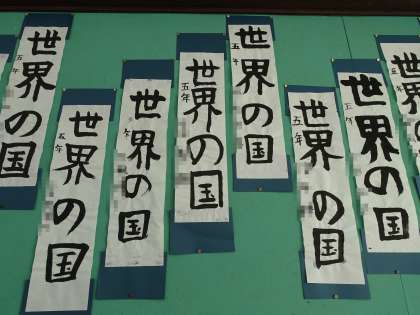 世界の国
五年
世界の国
五年
世界の国
年
世界の国
五年
世界の国
五年
世界の国
五年
世界の国
五年
世界の